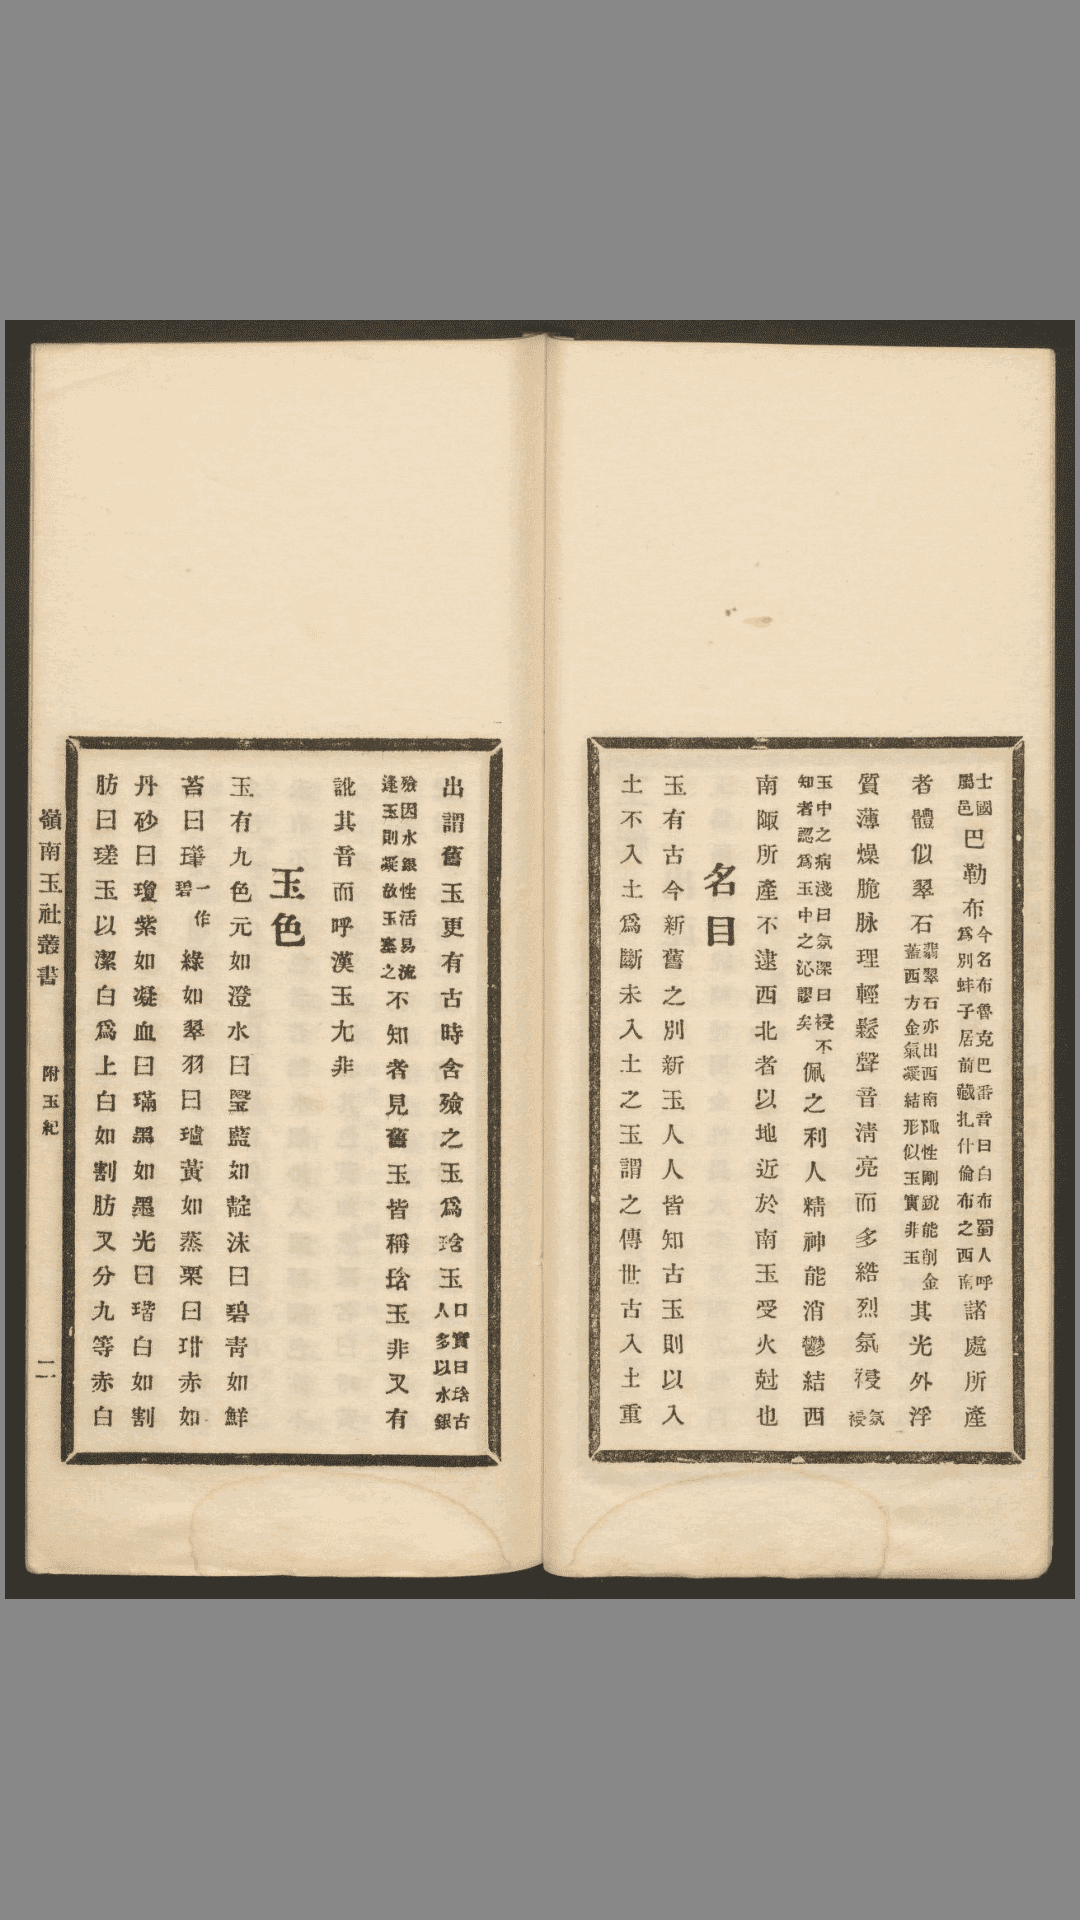 士國屬邑巴勒布今名布魯克巴番音曰白布蜀人呼爲別蚌子居前藏扎什倫布之西南諸處所產
者體似翠石翡翠石亦出西南陬性剛銳能削金蓋西方金氣凝結形似玉實非玉其光外浮
質薄燥脆脉理輕鬆聲音淸亮而多綹烈氛祲氛祲
玉中之病淺曰氛深曰祲不知者認爲玉中之沁謬矣佩之利人精神能消鬱結西
南陬所產不逮西北者以地近於南玉受火尅也
名目
玉有古今新舊之別新玉人人皆知古玉則以入
土不入土爲斷未入土之玉謂之傳世古入土重
出謂舊玉更有古時含殮之玉爲琀玉口實曰琀古人多以水銀
殮因水銀性活易流逢玉則凝故玉塞之不知者見舊玉皆稱琀玉非又有
訛其音而呼漢玉尢非
玉色
玉有九色元如澄水曰瑿藍如靛沫曰碧靑如鮮
苔曰㻫一作碧綠如翠羽曰瓐黃如蒸栗曰玵赤如
丹砂曰瓊紫如凝血曰璊黑如墨光曰瑎白如割
肪曰瑳玉以潔白爲上白如割肪又分九等赤白
嶺南玉社叢書 附玉紀 二